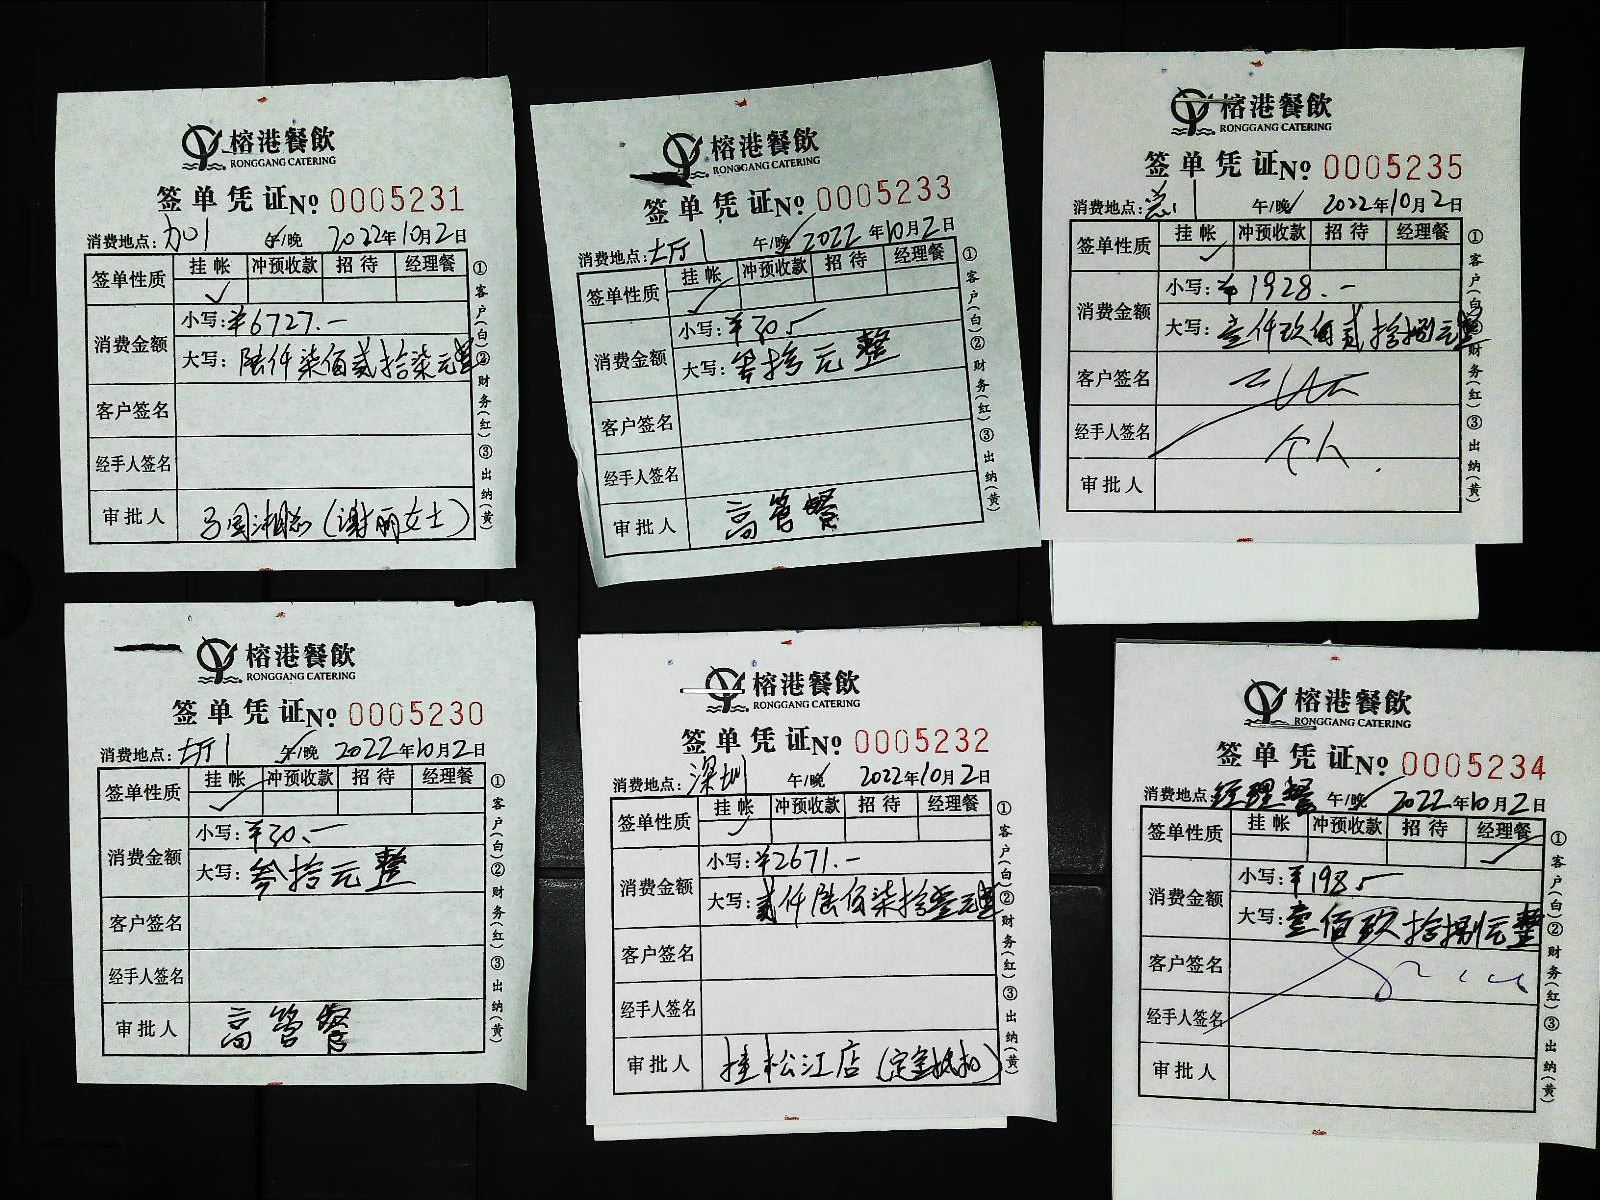 榕港餐飲
RONGGANG CATERING
签单凭证 № 0005231
消费地点: 午/晚 2022年10月2日
签单性质 挂帐 冲预收款 招待 经理餐
✓
消费金额 小写: ¥6727.—
大写: 陆仟柒佰贰拾柒元整
客户签名
经手人签名
审批人 (谢丽女士)
①客户(白)②财务(红)③出纳(黄)
榕港餐飲
RONGGANG CATERING
签单凭证 № 0005233
消费地点: 大厅1 午/晚 2022年10月2日
签单性质 挂帐 冲预收款 招待 经理餐
✓
消费金额 小写: ¥30.—
大写: 叁拾元整
客户签名
经手人签名
审批人 高管餐
①客户(白)②财务(红)③出纳(黄)
榕港餐飲
RONGGANG CATERING
签单凭证 № 0005235
消费地点: 午/晚 2022年10月2日
签单性质 挂帐 冲预收款 招待 经理餐
✓
消费金额 小写: ¥1928.—
大写: 壹仟玖佰贰拾捌元整
客户签名
经手人签名 个人
审批人
①客户(白)②财务(红)③出纳(黄)
榕港餐飲
RONGGANG CATERING
签单凭证 № 0005230
消费地点: 大厅1 午/晚 2022年10月2日
签单性质 挂帐 冲预收款 招待 经理餐
✓
消费金额 小写: ¥30.—
大写: 叁拾元整
客户签名
经手人签名
审批人 高管餐
①客户(白)②财务(红)③出纳(黄)
榕港餐飲
RONGGANG CATERING
签单凭证 № 0005232
消费地点: 深圳 午/晚 2022年10月2日
签单性质 挂帐 冲预收款 招待 经理餐
✓
消费金额 小写: ¥2671.—
大写: 贰仟陆佰柒拾壹元整
客户签名
经手人签名
审批人 挂松江店(定金抵扣)
①客户(白)②财务(红)③出纳(黄)
榕港餐飲
RONGGANG CATERING
签单凭证 № 0005234
消费地点: 经理餐 午/晚 2022年10月2日
签单性质 挂帐 冲预收款 招待 经理餐
✓
消费金额 小写: ¥198.—
大写: 壹佰玖拾捌元整
客户签名
经手人签名
审批人
①客户(白)②财务(红)③出纳(黄)